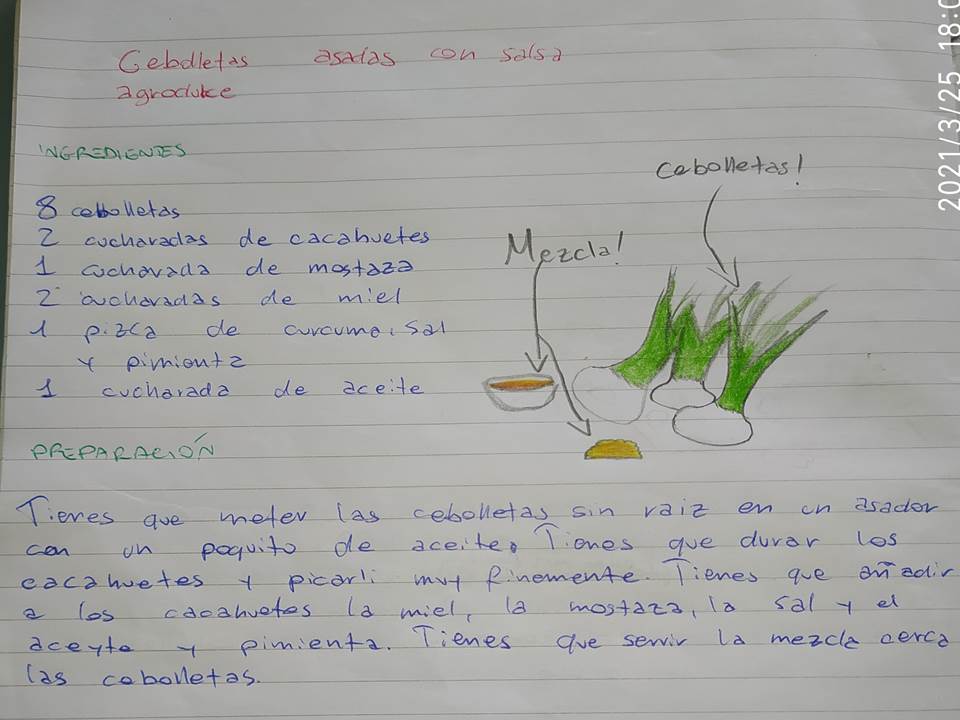 Cebolletas asadas con salsa
agrodulce
INGREDIENTES
8 cebolletas
2 cucharadas de cacahuetes
1 cucharada de mostaza
2 cucharadas de miel
1 pizca de curcuma, sal
y pimienta
1 cucharada de aceite
Cebolletas!
Mezcla!
PREPARACIÓN
Tienes que meter las cebolletas sin raiz en un asador
con un poquito de aceite. Tienes que durar los
cacahuetes y picarli muy finemente. Tienes que añadir
a los cacahuetes la miel, la mostaza, la sal y el
aceyte y pimienta. Tienes que servir la mezcla cerca
las cebolletas.